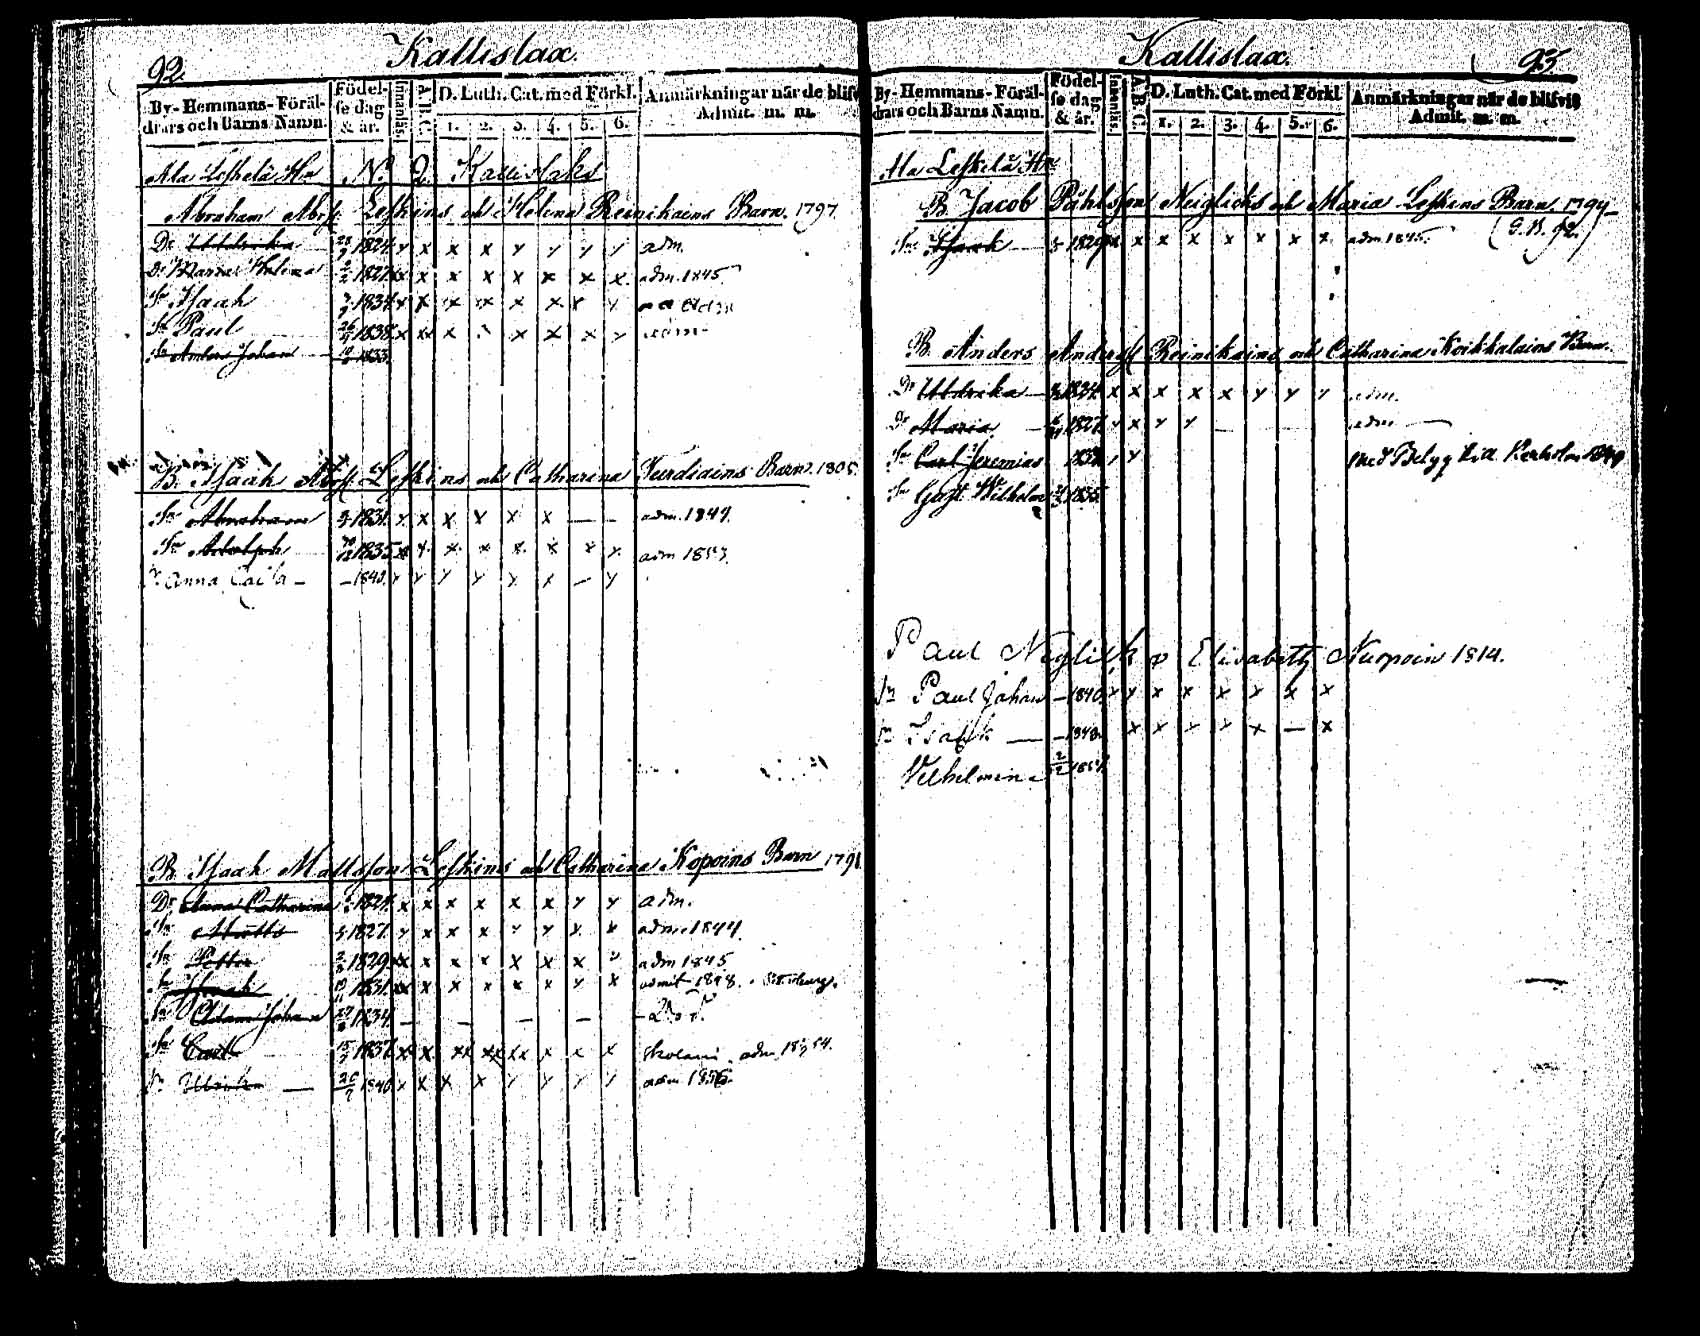 92
Kallislax.
By- Hemmans- Föräl-
drars och Barns Namn.
Födel-
se dag
& år.
Innanläs.
A. B. C.
D. Luth. Cat. med Förkl.
1. 2. 3. 4. 5. 6.
Anmärkningar när de blifv
Admit. m. m.
Ala Leskelä Hn No 9 Kallislaks
Abraham Abrss. Leskins och Helena Reinikains Barn. 1797.
Dr Ulldrika 1824 y x x x y y y y adm.
Dr Helena 1827 x x x x x x x x adm. 1845
Sn Isaak 1834 x x x x x x x y
Sn Paul 1838 x x x x x x y
Sn Anders Johan 1833
B. Isaak Abrss. Leskins och Catharina Turdiains Barn. 1805.
Sn Abraham 1831 y x x x x x — — adm. 1849.
Sn Adolph 1835 x x x x x x x x adm 1853.
Dr Anna Caisa — 1840. y y y y y x — y
B. Isaak Mattsson Leskins och Catharina Kopoins Barn 1791
Dr Anna Catharina 1824 x x x x x x y y adm.
Sn Matts 1827 y x x x y y x x adm. 1844.
Sn Petter 1829 x x x x x x x adm 1845
Sn Isaak 1831 x x x x x x y x admit 1848.
Sn Adam Johan 1834 — — — —
Sn Carl 1837 x x xx xx xx x x x adm. 1854.
Ulrika — 26/7 1840 x x x x y y y y adm 1856
Kallislax.
93.
By- Hemmans- Föräl-
drars och Barns Namn.
Födel-
se dag
& år.
Innanläs.
A. B. C.
D. Luth. Cat. med Förkl
1. 2. 3. 4. 5. 6.
Anmärkningar när de blifvit
Admit. m. m.
Ala Leskelä Hn
B. Jacob Påhlsson Neiglicks och Maria Leskens Barn. 1794
Sn Isaak 1829 x x x x x x x x adm 1845.
B. Anders Anderss. Reinikains och Catharina Koikkalains Barn.
Dr Ulldrika 1824 x x x x x y y y adm.
Dr Maria 1827 y x y y — adm —
Sn Carl Jeremias 1832 y y med Betyg 1849
Sn Gust. Wilhelm 1835
Paul Neglick o Elisabeth Nurpoin 1814.
Sn Paul Johan — 1840. x y x x x y x x
Sn Isak — 1848. x x y y x — x
Vilhelmina 2/12 1851